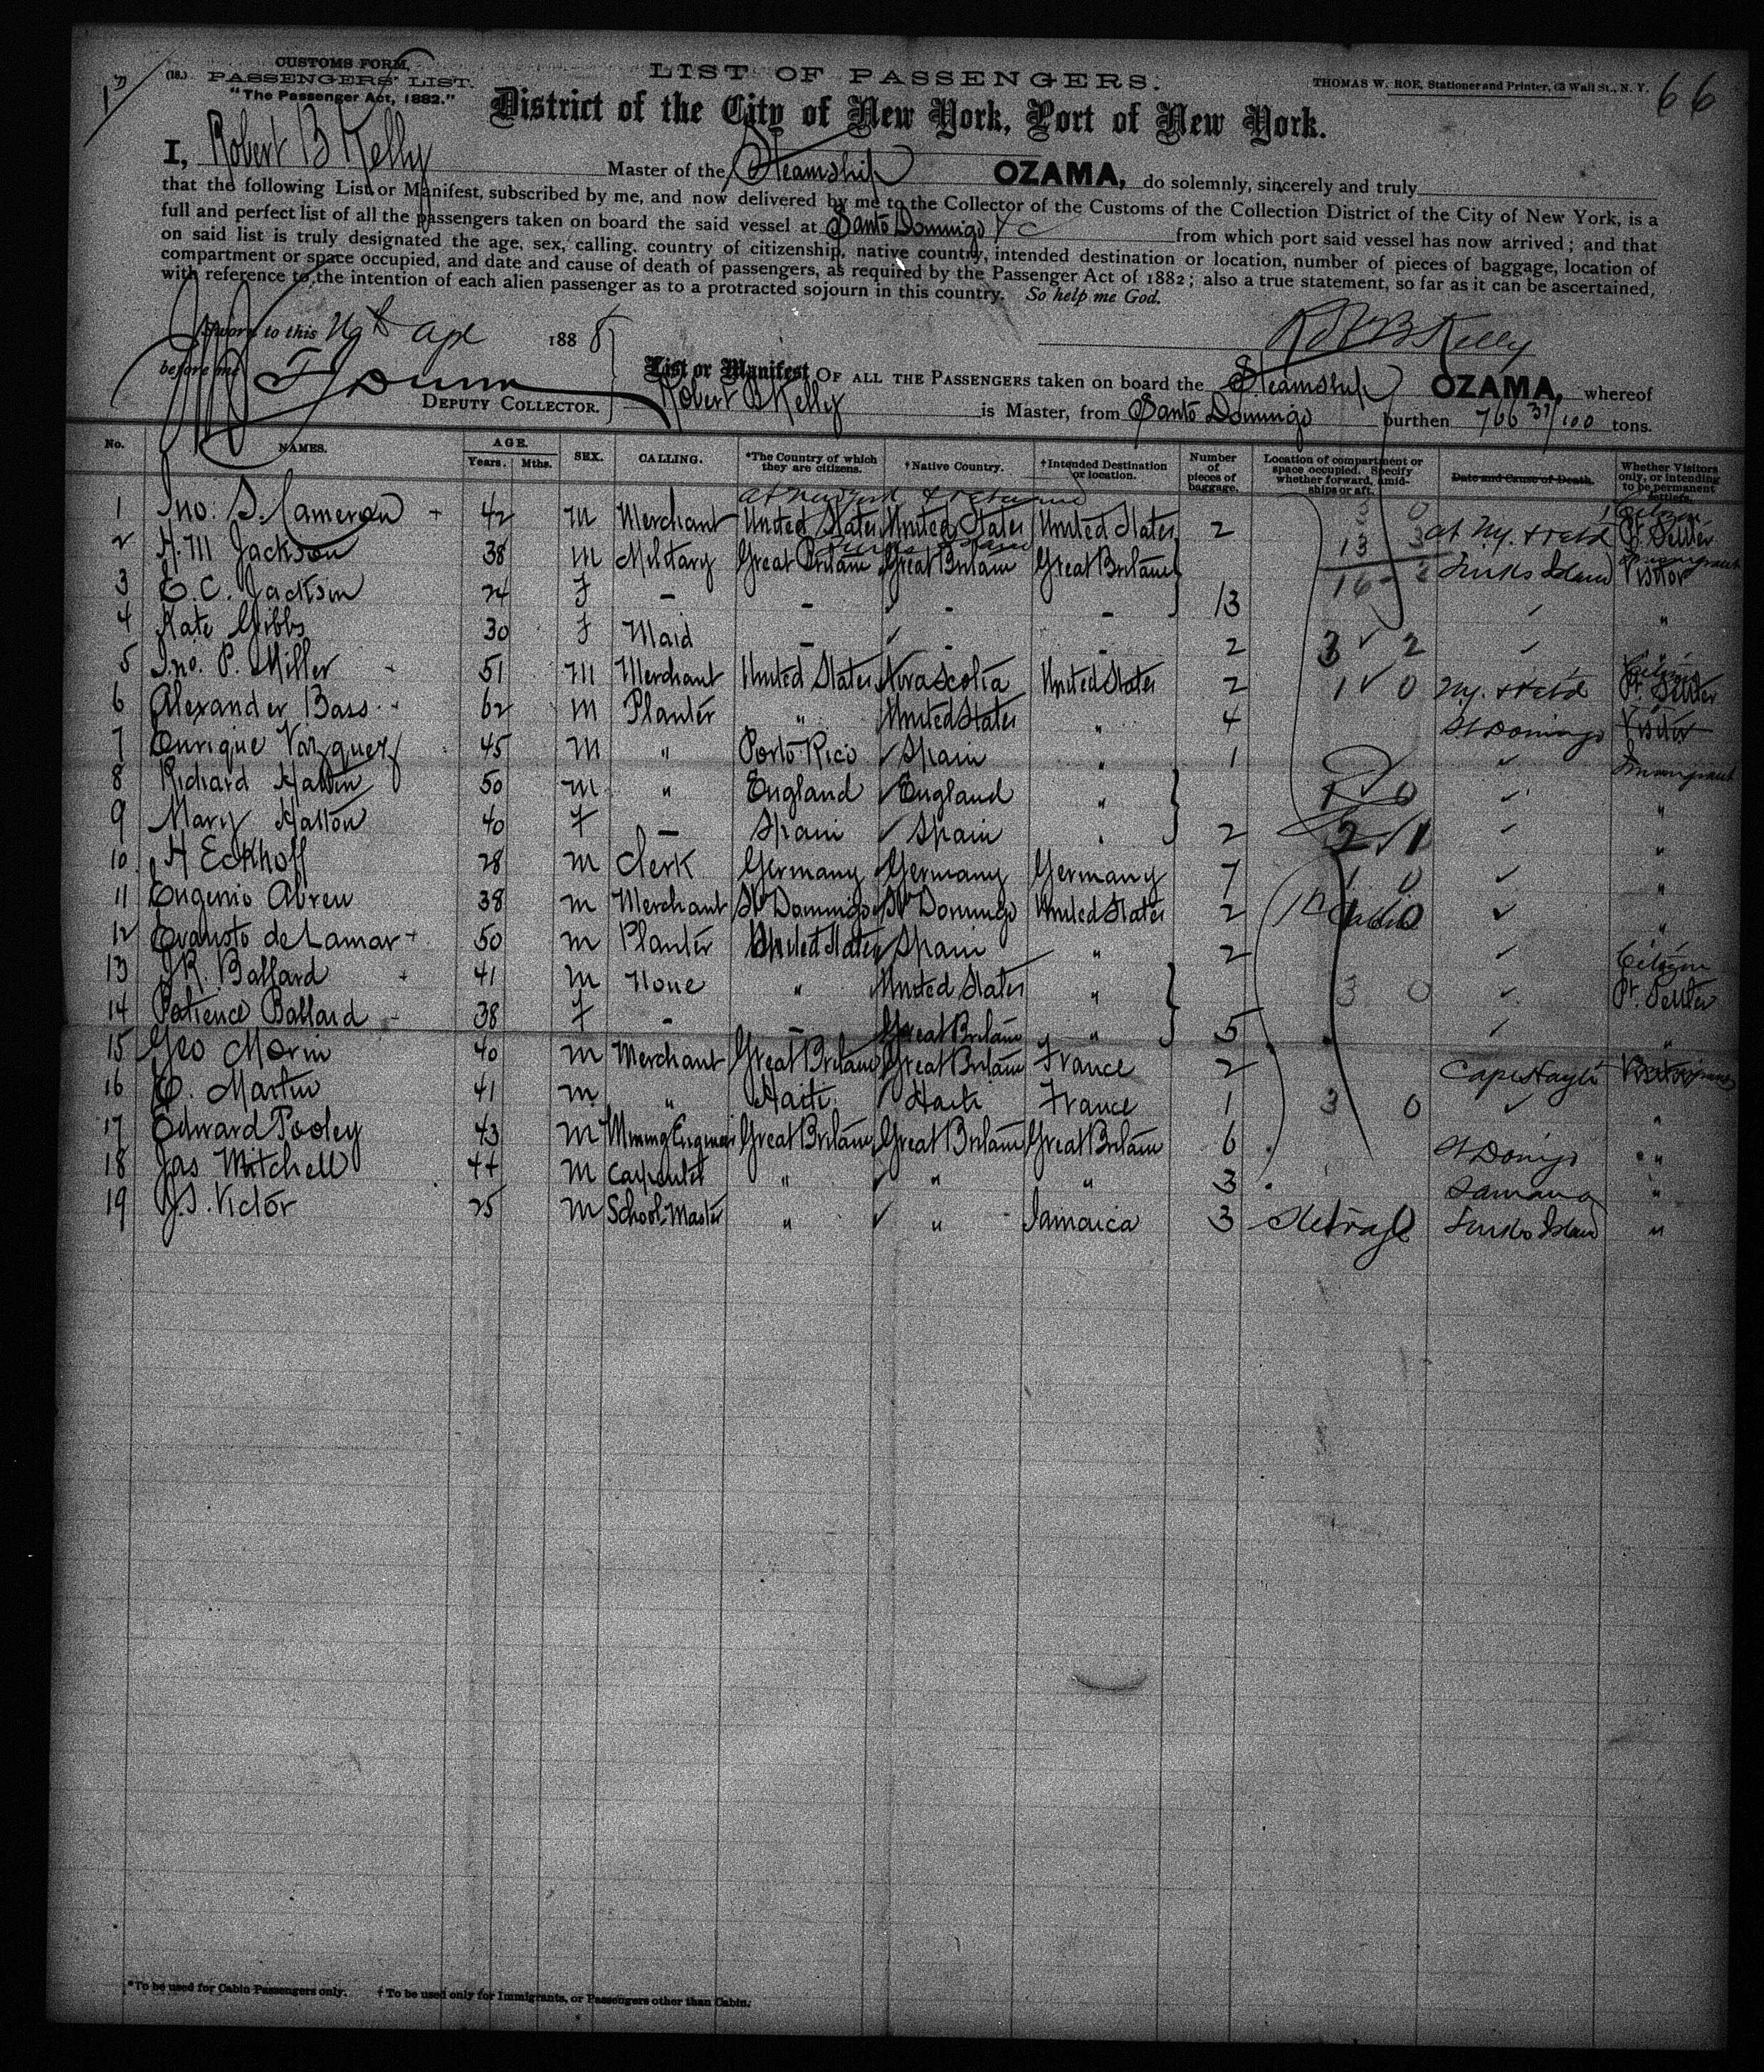 CUSTOMS FORM.
(18.) PASSENGERS' LIST.
"The Passenger Act, 1882."
LIST OF PASSENGERS.
THOMAS W. ROE, Stationer and Printer, 63 Wall St., N. Y.
66
District of the City of New York, Port of New York.
I, Robert B Kelly Master of the Steamship OZAMA, do solemnly, sincerely and truly
that the following List or Manifest, subscribed by me, and now delivered by me to the Collector of the Customs of the Collection District of the City of New York, is a
full and perfect list of all the passengers taken on board the said vessel at Santo Domingo &c from which port said vessel has now arrived; and that
on said list is truly designated the age, sex, calling, country of citizenship, native country, intended destination or location, number of pieces of baggage, location of
compartment or space occupied, and date and cause of death of passengers, as required by the Passenger Act of 1882; also a true statement, so far as it can be ascertained,
with reference to the intention of each alien passenger as to a protracted sojourn in this country. So help me God.
Sworn to this Apl 1888
Robt B Kelly
before me
DEPUTY COLLECTOR.
List or Manifest OF ALL THE PASSENGERS taken on board the Steamship OZAMA, whereof
Robert B Kelly is Master, from Santo Domingo burthen 766 37/100 tons.
No. NAMES. AGE. Years. Mths. SEX. CALLING. *The Country of which they are citizens. †Native Country. †Intended Destination or location. Number of pieces of baggage. Location of compartment or space occupied. Specify whether forward, amidships or aft. Date and Cause of Death. Whether Visitors only, or intending to be permanent settlers.
1 Jno. S. Cameron 42 M Merchant United States United States United States 2 at Ny. & retd Pt. Settler Citizen
2 H. M Jackson 38 M Military Great Britain Great Britain Great Britain Turks Island Visitor
3 E. C. Jackson 24 F - - - - 13
4 Kate Gibbs 30 F Maid - - - 2 3 2
5 Jno. P. Miller 51 M Merchant United States Nova Scotia United States 2 1 0 Ny. & retd Pt. Settler Citizen
6 Alexander Bass 62 M Planter " United States " 4 St Domingo Visitor
7 Enrique Vazquez 45 M " Porto Rico Spain " 1 Immigrant
8 Richard Hatton 50 M " England England " "
9 Mary Hatton 40 F - Spain Spain " 2 2 1 "
10 H Eckhoff 28 M Clerk Germany Germany Germany 7 1 0 "
11 Eugenio Abreu 38 M Merchant St Domingo St Domingo United States 2 Cabin "
12 Evaristo de Lamar 50 M Planter United States Spain " 2 Citizen
13 J. R. Ballard 41 M None " United States " 3 0 Pt. Settler
14 Patience Ballard 38 F - - Great Britain " 5 "
15 Geo Morin 40 M Merchant Great Britain Great Britain France 2 Cape Hayti
16 C. Martin 41 M " Haiti Haiti France 1 3 0 "
17 Edward Pooley 43 M Mining Engineer Great Britain Great Britain Great Britain 6 St Domigo "
18 Jas Mitchell 44 M Carpenter " " " 3 Samana "
19 J. S. Victor 25 M School Master " " Jamaica 3 Steerage Turks Island "
*To be used for Cabin Passengers only. †To be used only for Immigrants, or Passengers other than Cabin.